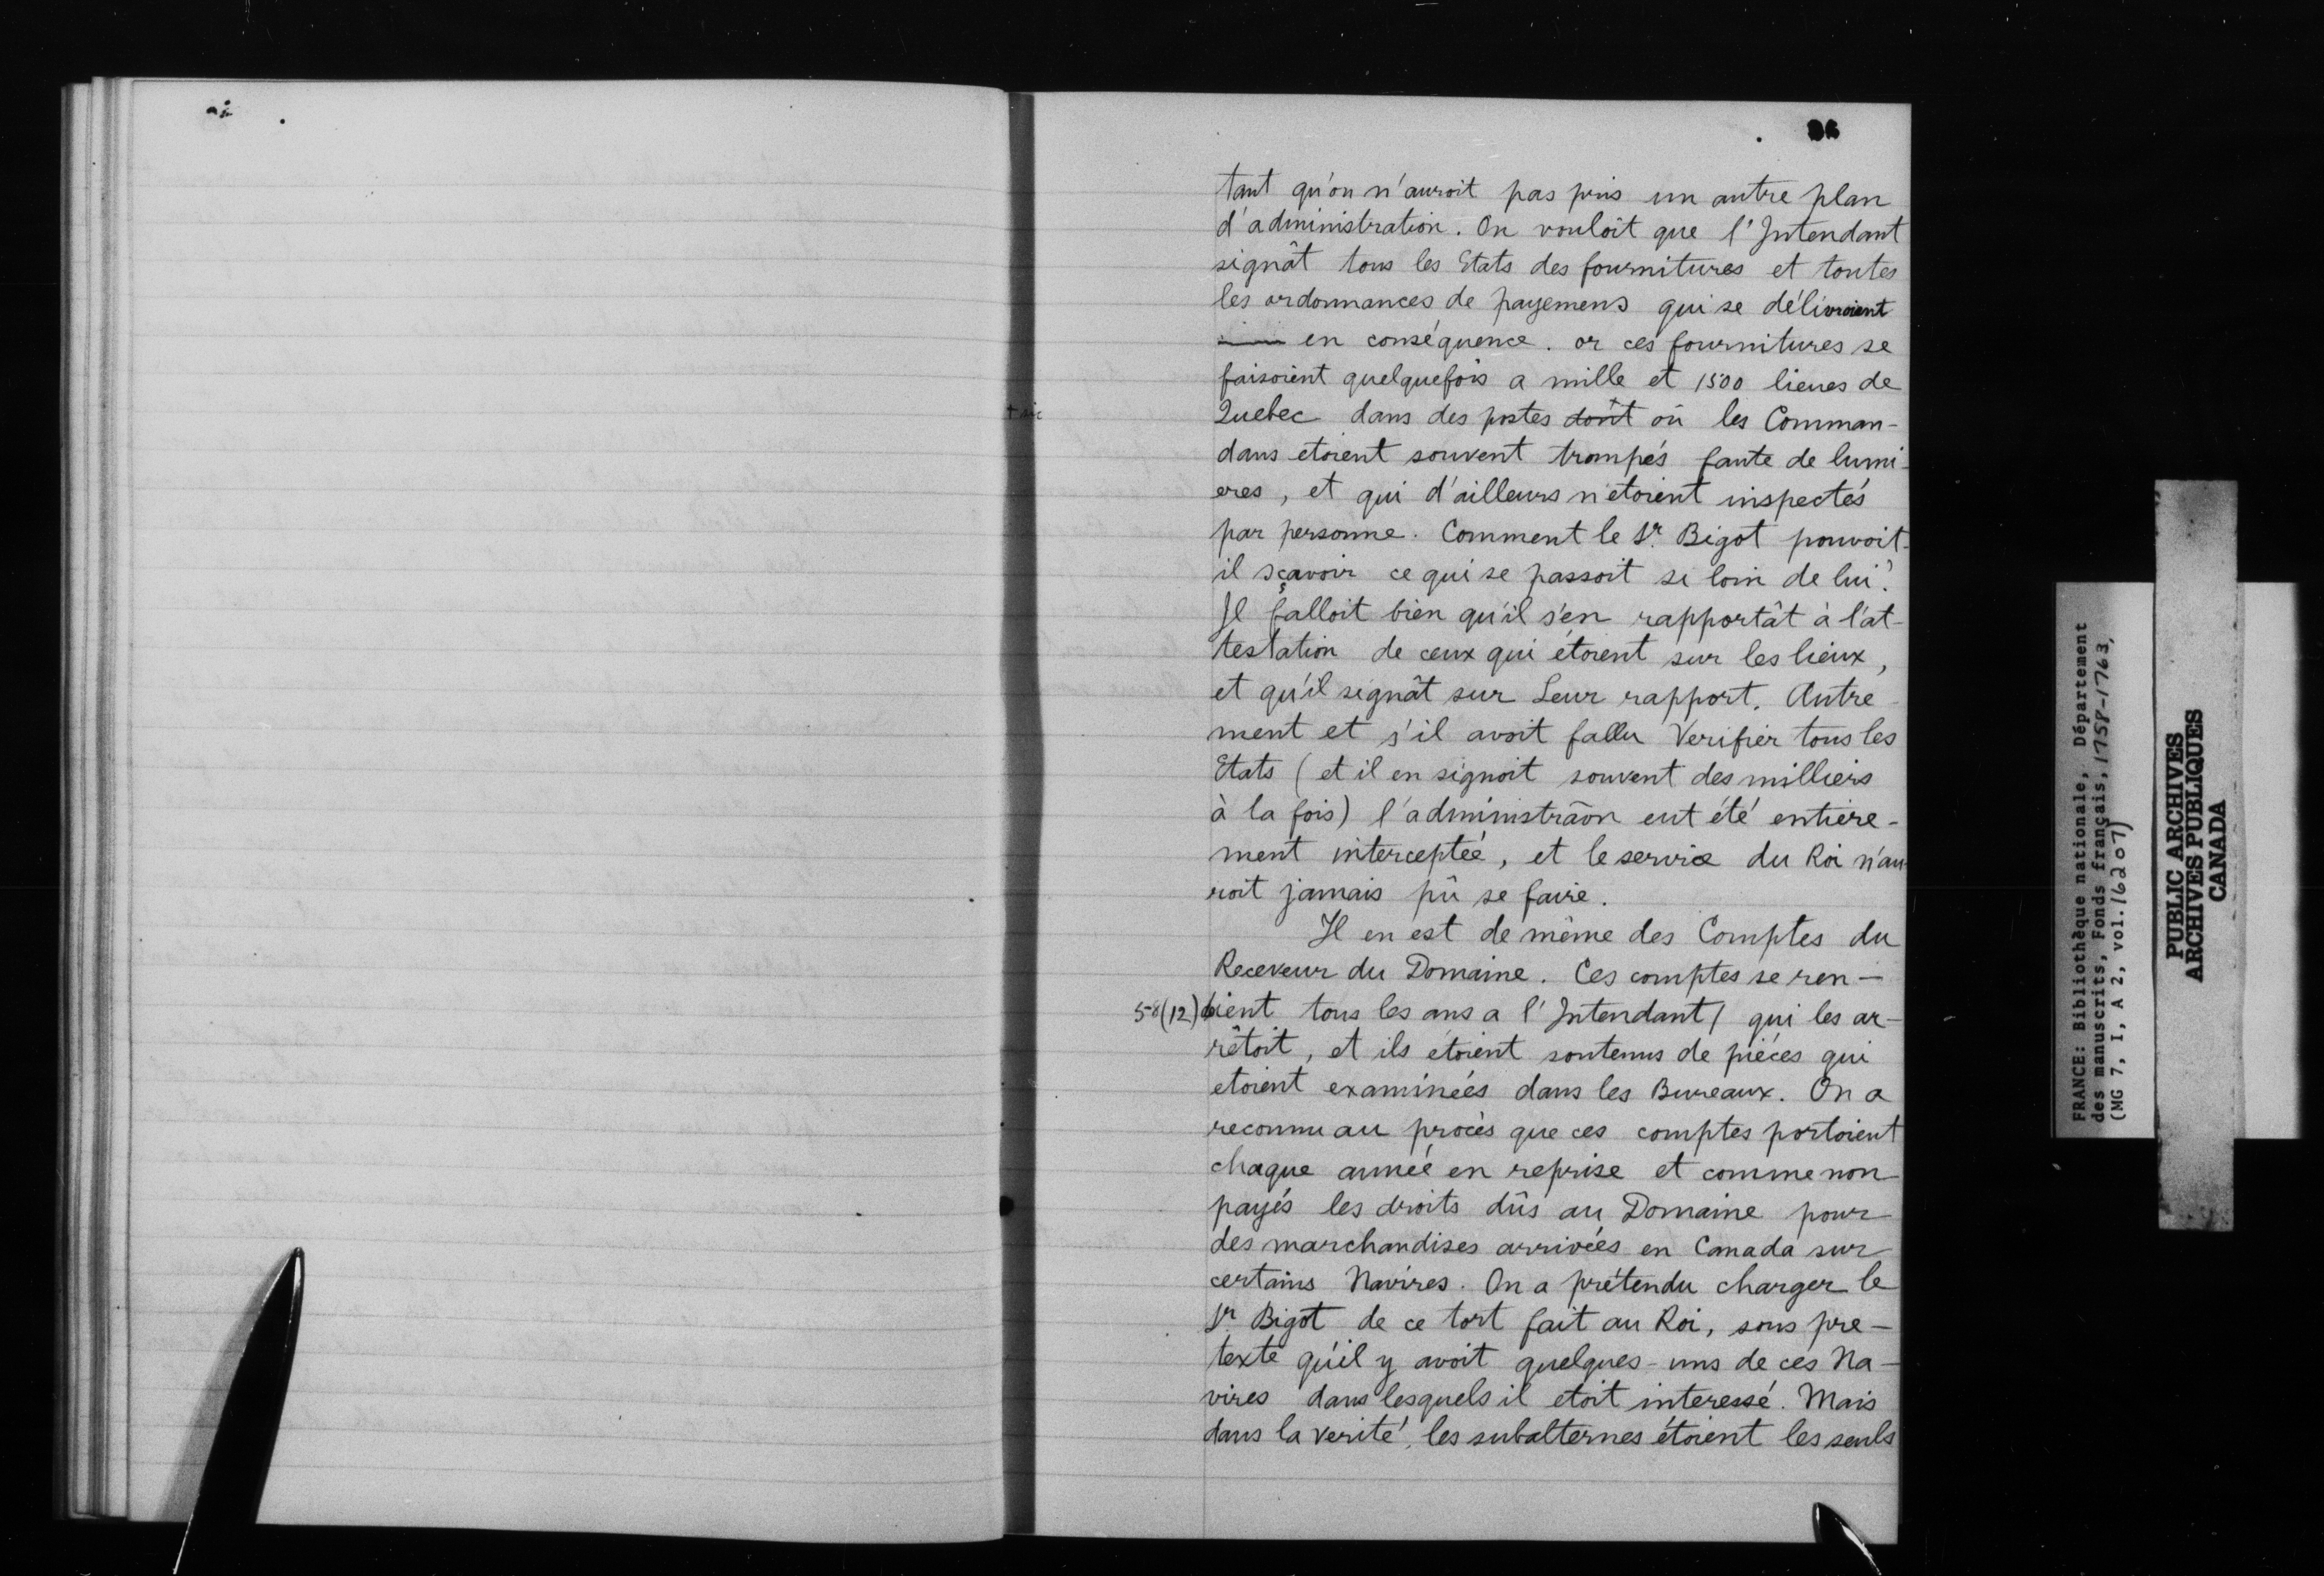 96
tant qu'on n'auroit pas pris un autre plan
d'administration. On vouloit que l'Intendant
signât tous les Etats des fournitures et toutes
les ordonnances de payemens qui se délivroient
en conséquence. or ces fournitures se
faisoient quelquefois a mille et 1500 lieues de
+ sic
Quebec dans des postes dont + où les Comman-
dans etoient souvent trompés faute de lumi-
eres, et qui d'ailleurs n'etoient inspectés
par personne. Comment le Sr. Bigot pouvoit-
il sçavoir ce qui se passoit si loin de lui?
Il falloit bien qu'il s'en rapportât à l'at-
testation de ceux qui étoient sur les lieux,
et qu'il signât sur Leur rapport. Autre-
ment et s'il avoit fallu Verifier tous les
Etats (et il en signoit souvent des milliers
à la fois) l'administrãon eut été entiere-
ment interceptée, et le service du Roi n'au-
roit jamais pû se faire.
Il en est de même des Comptes du
Receveur du Domaine. Ces comptes se ren-
58(12) doient tous les ans a l'Intendant/ qui les ar-
rêtoit, et ils étoient soutenus de piéces qui
etoient examinées dans les Bureaux. On a
reconnu au procès que ces comptes portoient
chaque année en reprise et comme non
payés les droits dûs au Domaine pour
des marchandises arrivées en Canada sur
certains Navires. On a prétendu charger le
Sr. Bigot de ce tort fait au Roi, sous pre-
texte qu'il y avoit quelques-uns de ces Na-
vires dans lesquels il etoit interessé. Mais
dans la verité, les subalternes étoient les seuls
FRANCE: Bibliothèque nationale, Département
des manuscrits, Fonds français, 1758-1763,
(MG 7, I, A 2, vol.16207)
PUBLIC ARCHIVES
ARCHIVES PUBLIQUES
CANADA